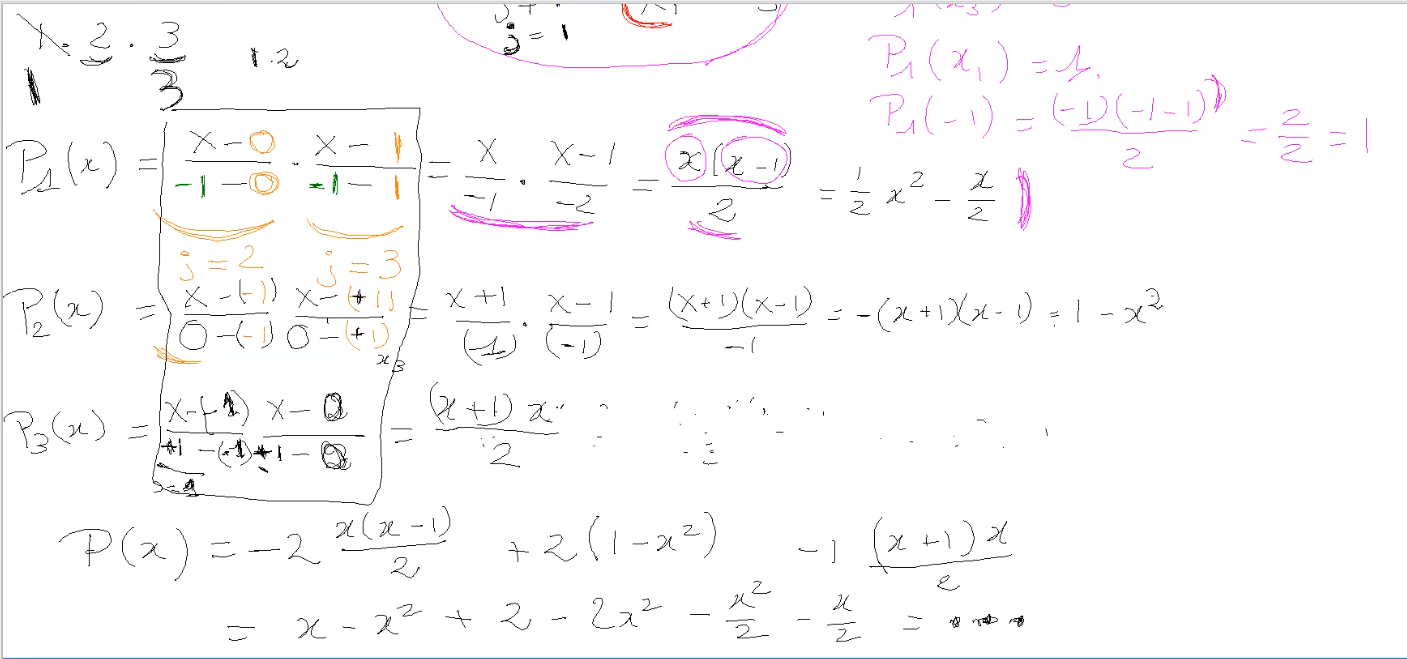 j = 1
1 · 2 · 3
1 3
1.2
P₁(x₁) = 1.
P₁(-1) = (-1)(-1-1) / 2 = 2/2 = 1
P₁(x) = (x-0)/(-1-0) · (x-1)/(-1-1) = x/-1 · (x-1)/-2 = x(x-1)/2 = 1/2 x² - x/2
j = 2 j = 3
P₂(x) = (x-(-1))/(0-(-1)) (x-(+1))/(0-(+1)) = (x+1)/(-1) · (x-1)/(-1) = (x+1)(x-1)/-1 = -(x+1)(x-1) = 1-x²
x₃
P₃(x) = (x-(-1))/(+1-(-1)) · (x-0)/(+1-0) = (x+1)x/2
P(x) = -2 x(x-1)/2 + 2(1-x²) -1 (x+1)x/2
= x - x² + 2 - 2x² - x²/2 - x/2 = ...